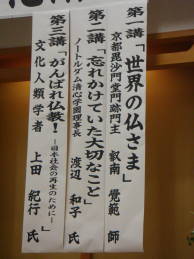 第一講「世界の仏さま」
京都毘沙門堂門跡門主 叡南 覚範 師
第二講「忘れかけていた大切なこと」
ノートルダム清心学園理事長 渡辺 和子 氏
第三講「がんばれ仏教!―日本社会の再生のために―」
文化人類学者 上田 紀行 氏